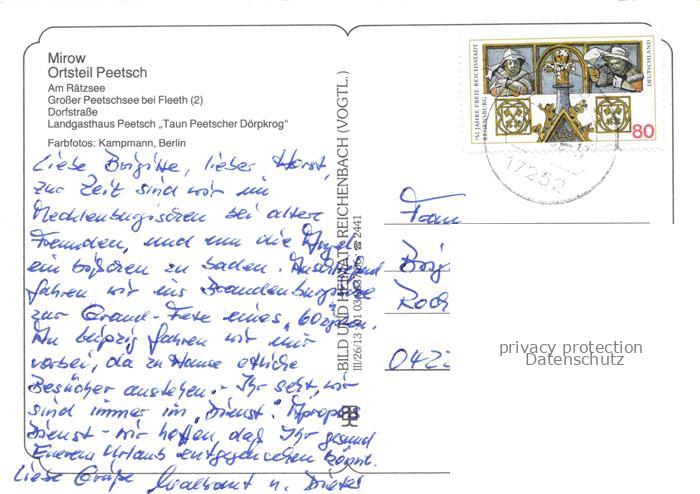 Mirow
Ortsteil Peetsch
Am Rätzsee
Großer Peetschsee bei Fleeth (2)
Dorfstraße
Landgasthaus Peetsch „Taun Peetscher Dörpkrog“
Farbfotos: Kampmann, Berlin
Liebe Brigitte, lieber Horst,
zur Zeit sind wir im
Mecklenburgischen bei alten
Freunden, und um die Angel
ein bißchen zu baden. Anschließend
fahren wir ins Brandenburgische
zur Grand-Fete eines „60zigers.
An Leipzig fahren wir nur
vorbei, da zu Hause etliche
Besucher anstehen. - Ihr seht, wir
sind immer im „Dienst“. Apropos
Dienst - wir hoffen, daß Ihr gesund
Eurem Urlaub entgegensehen könnt.
Liebe Grüße Waltraut u. Dieter
BILD UND HEIMAT REICHENBACH (VOGTL.)
III/26/13 ☎ 2441
750 JAHRE FREIE REICHSSTADT
REGENSBURG
DEUTSCHLAND
80
17252
Frau
Brig
Roch
0422
privacy protection
Datenschutz